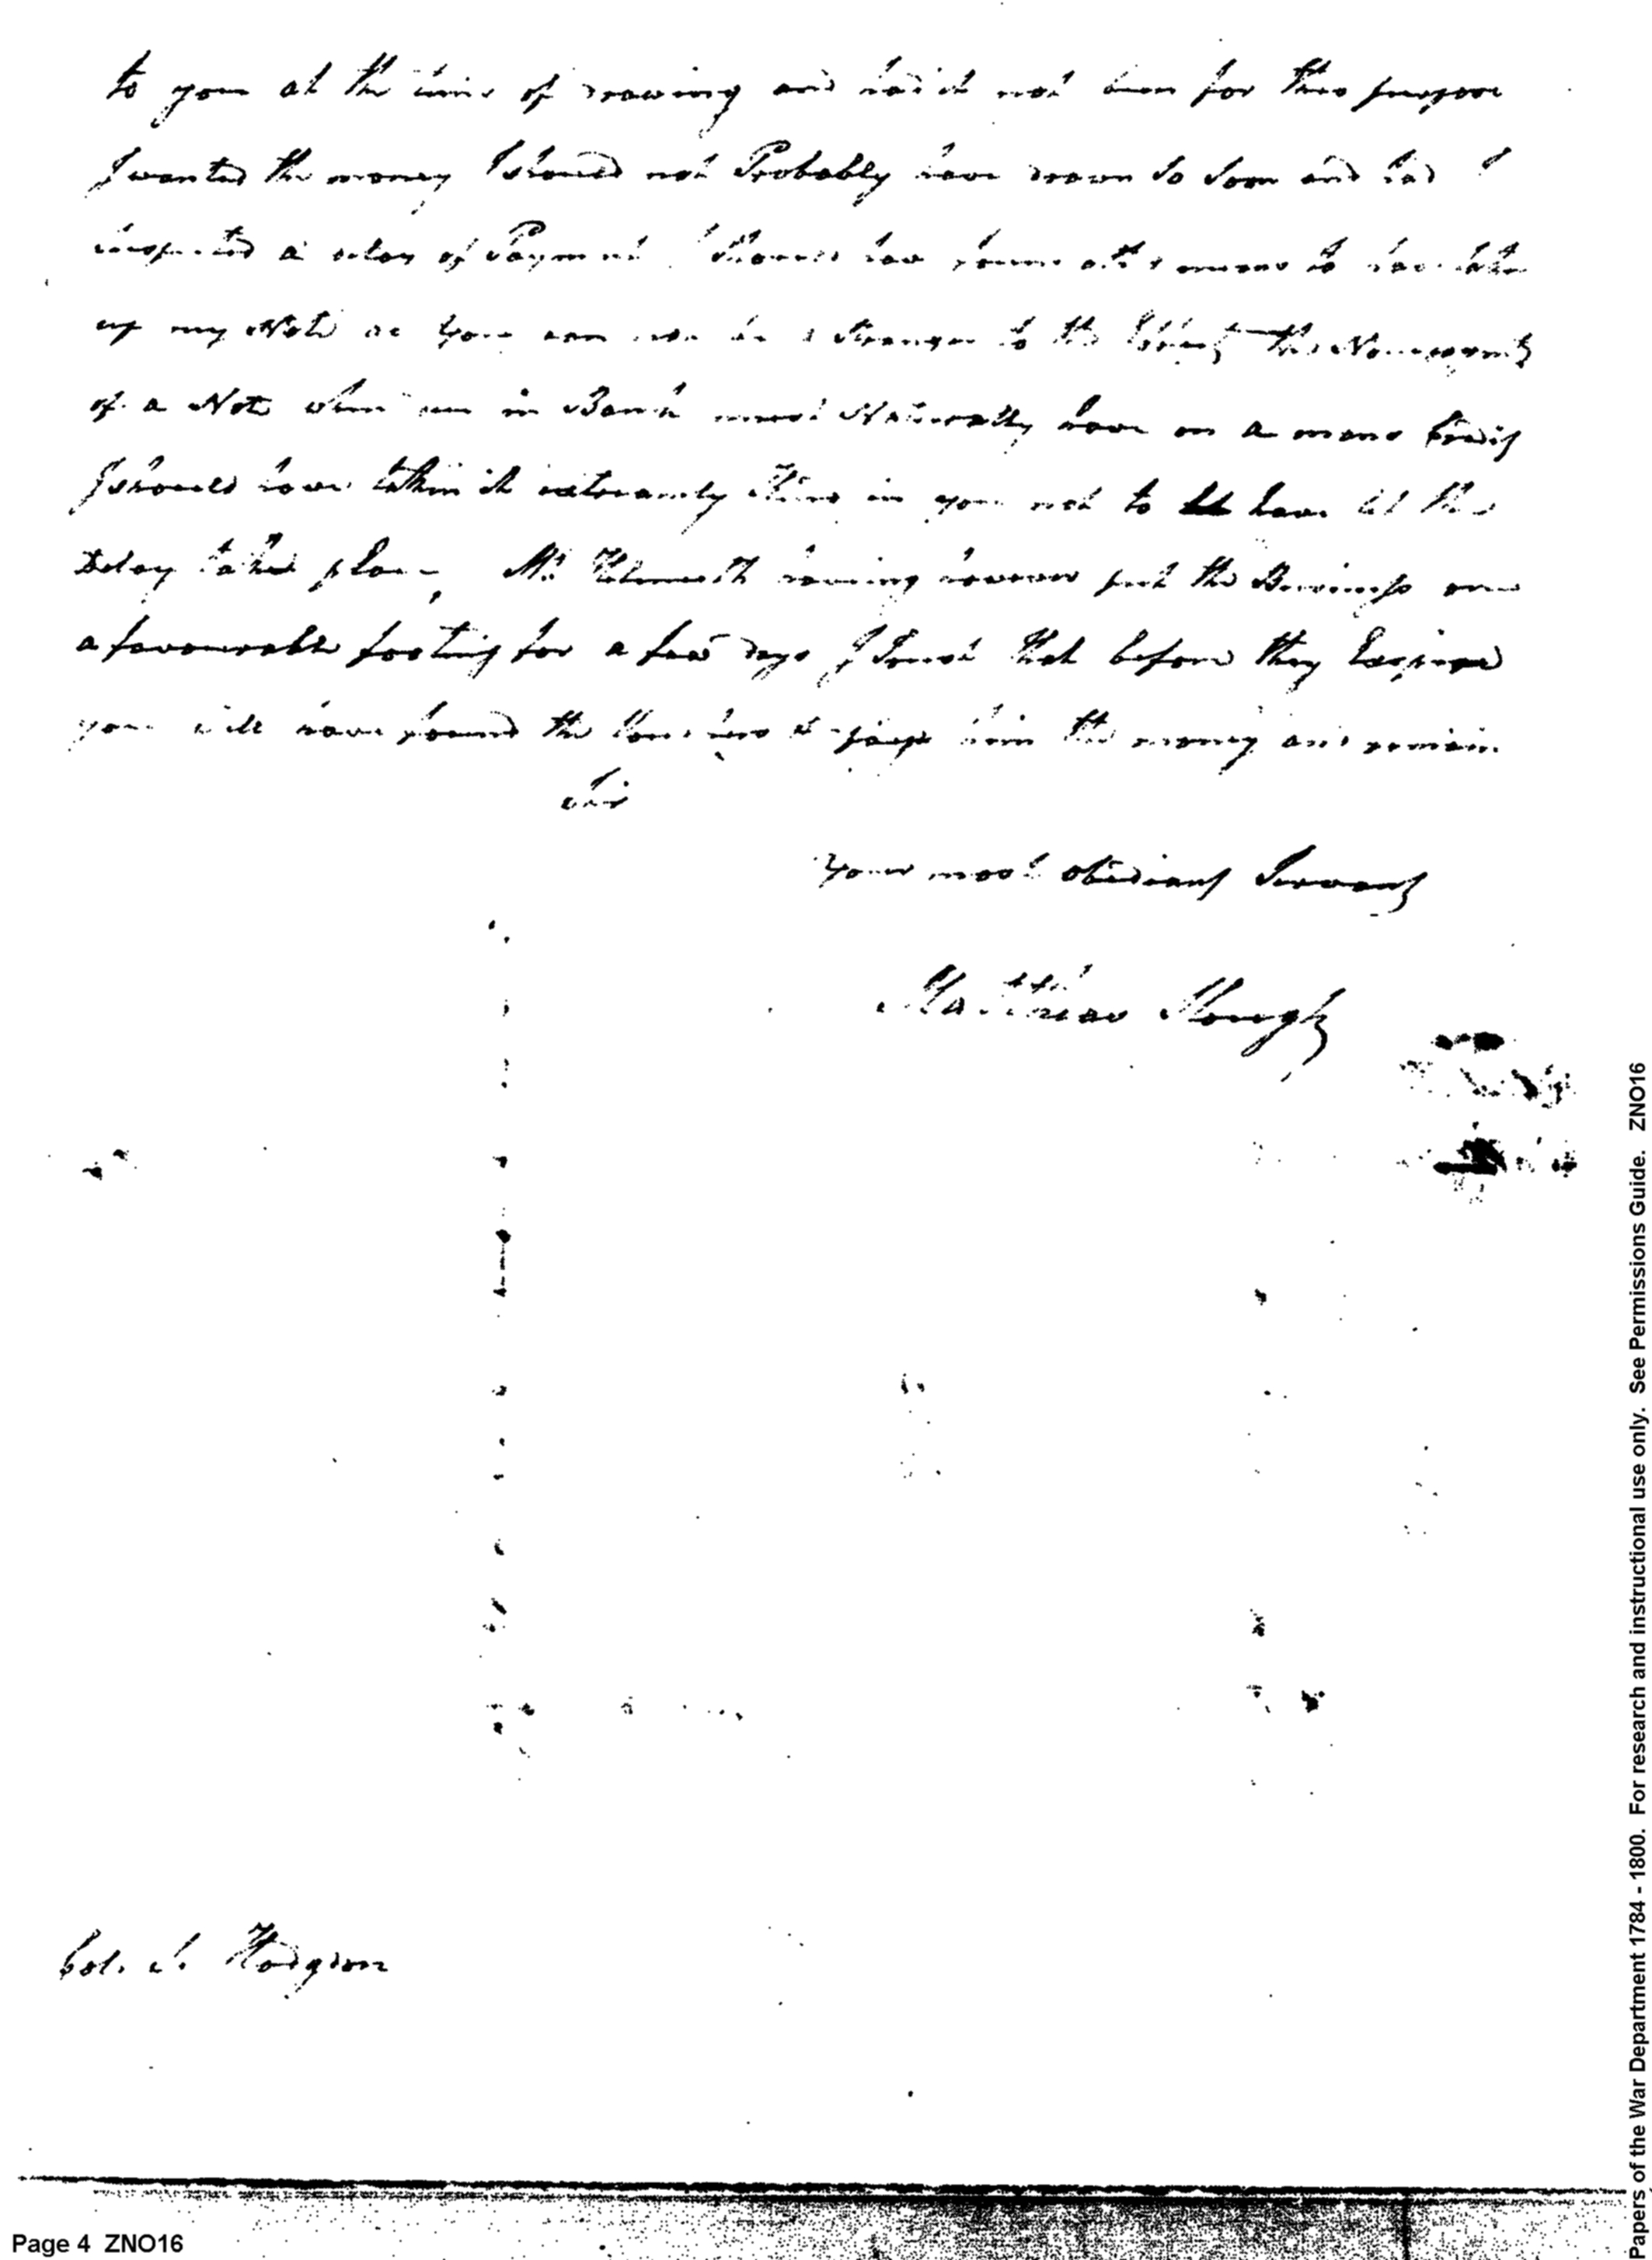 to you at the time of drawing and had it not been for this purpose
I wanted the money I should not Probably have drawn so soon and had I
a delay of Payment I should have found other means to have taken
up my Note as you can not be a Stranger to the Effect the Nonpayment
of a Note when run in Bank must Naturally have on a mans Credit
I should have taken it extreamly Kind in you not to have let the
Delay taken place, Mr. having however put the Business on
a favourable footing for a few days I trust that before they Expire
you will have found the to him the money and remain
Sir
Your most obedient Servant
Matthias Slough
Col. S. Hodgdon
Page 4 ZNO16
Papers of the War Department 1784 - 1800. For research and instructional use only. See Permissions Guide. ZNO16